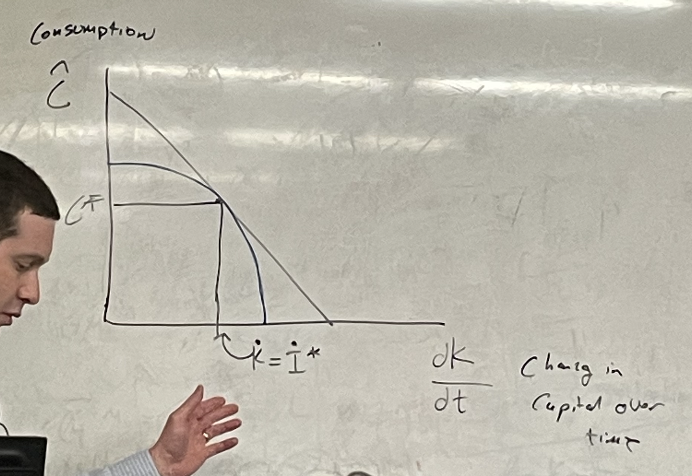 Consumption
Ĉ
C*
K̇ = İ*
dK
dt
Chang in
Capital over
time